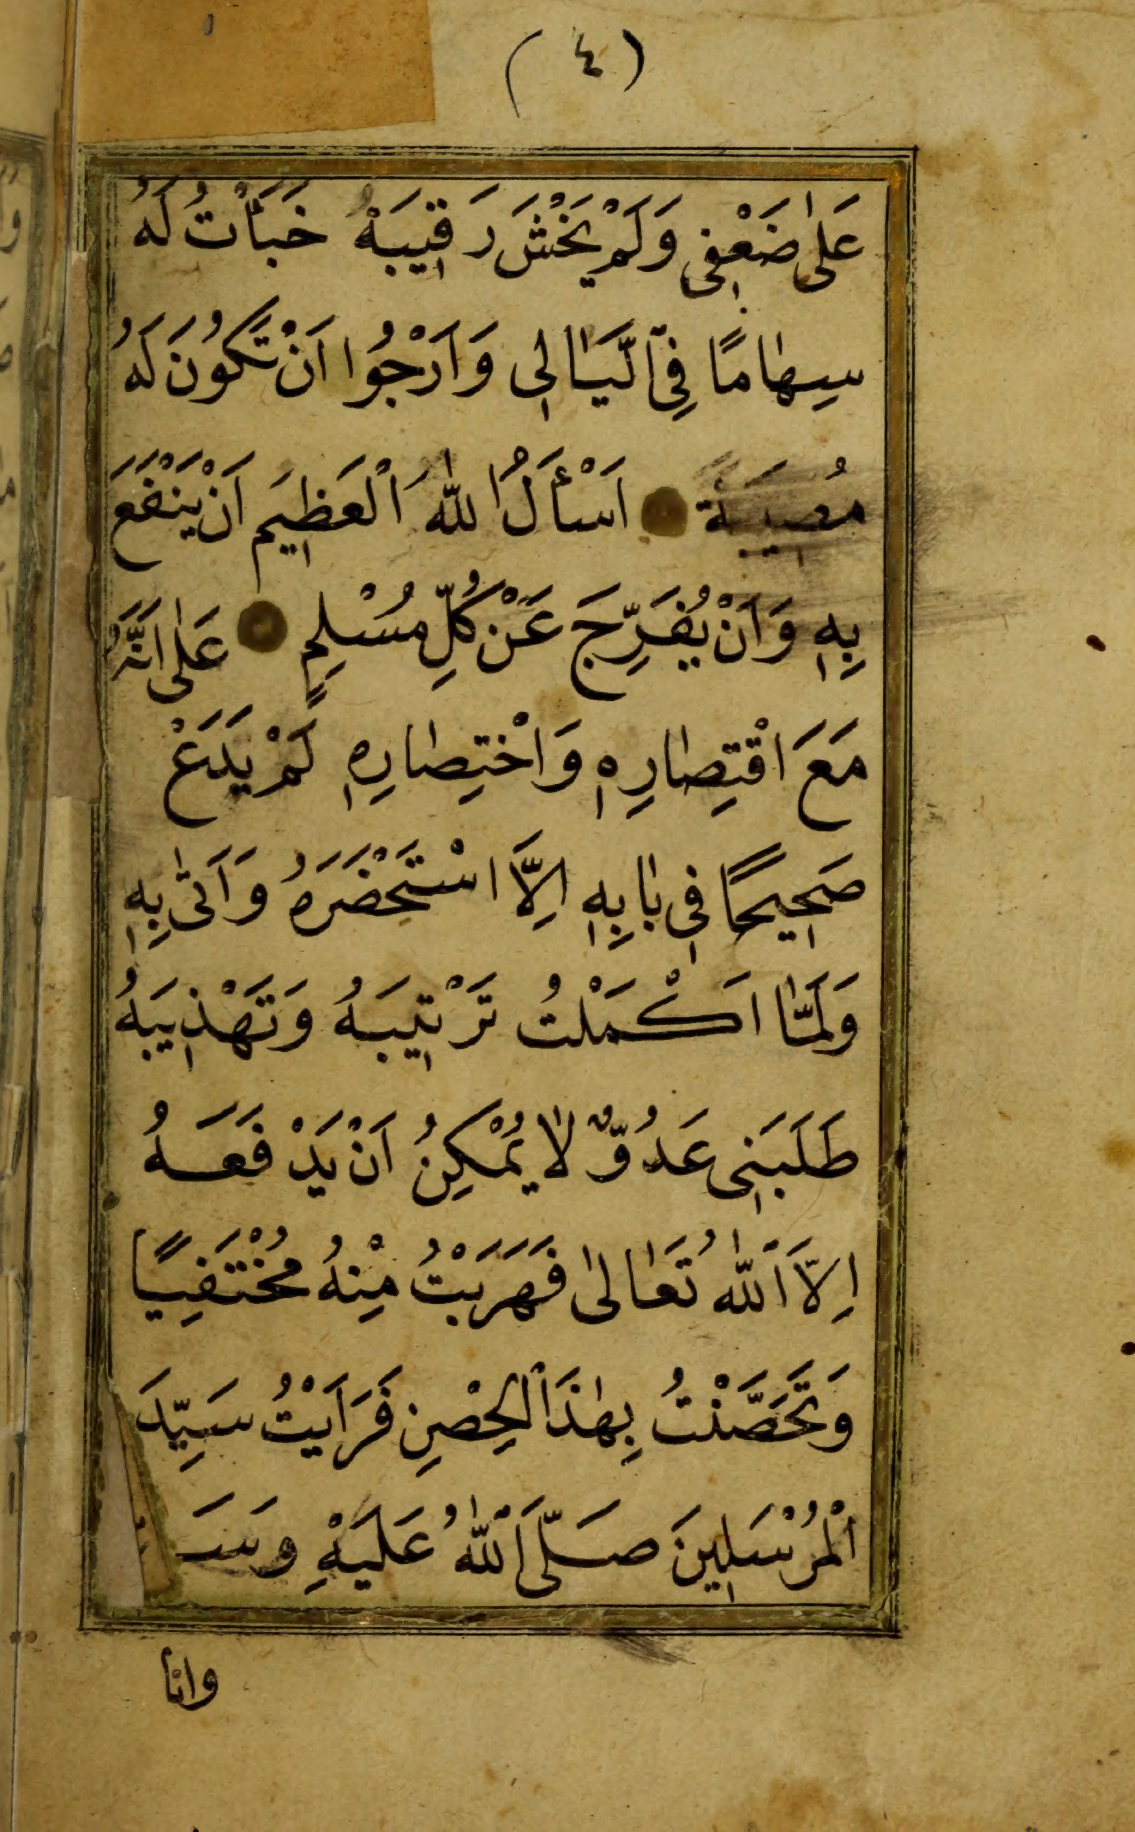 (٤)
عَلٰى ضَعْفِى وَلَمْ يَخْشَ رَقِيبَهْ خَبَأْتُ لَهُ
سِهَامًا فِى ٱلَّيَالِى وَاَرْجُوا اَنْ تَكُونَ لَهُ
مُصِيبَةً اَسْأَلُ اللّٰهَ اَلْعَظِيمَ اَنْ يَنْفَعَ
بِهِ وَاَنْ يُفَرِّجَ عَنْ كُلِّ مُسْلِمٍ عَلٰى اَنَّهُ
مَعَ اقْتِصَارِهِ وَاخْتِصَارِهِ لَمْ يَدَعْ
صَحِيحًا فِى بَابِهِ اِلَّا اسْتَحْضَرَهُ وَاَتٰى بِهِ
وَلَمَّا اَكْمَلْتُ تَرْتِيبَهُ وَتَهْذِيبَهُ
طَلَبَنِى عَدُوٌّ لَا يُمْكِنُ اَنْ يَدْفَعَهُ
اِلَّا اَللّٰهُ تَعَالٰى فَهَرَبْتُ مِنْهُ مُخْتَفِيًا
وَتَحَصَّنْتُ بِهٰذَا ٱلْحِصْنِ فَرَاَيْتُ سَيِّدَ
اَلْمُرْسَلِينَ صَلَّى اَللّٰهُ عَلَيْهِ وَسَ
وانا